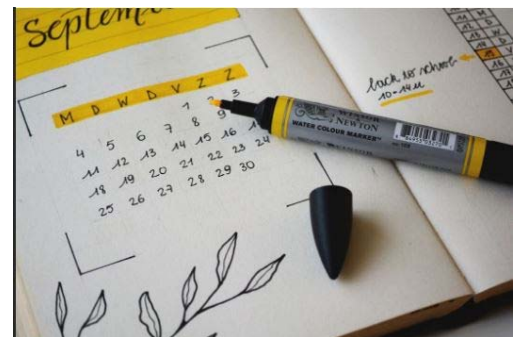 September
M D W D V Z Z
1 2 3
4 5 6 7 8 9
11 12 13 14 15 16
18 19 20 21 22 23 24
25 26 27 28 29 30
back to school
10-14u
WINSOR
& NEWTON
WATER COLOUR MARKER
11 M
15 V
16
17